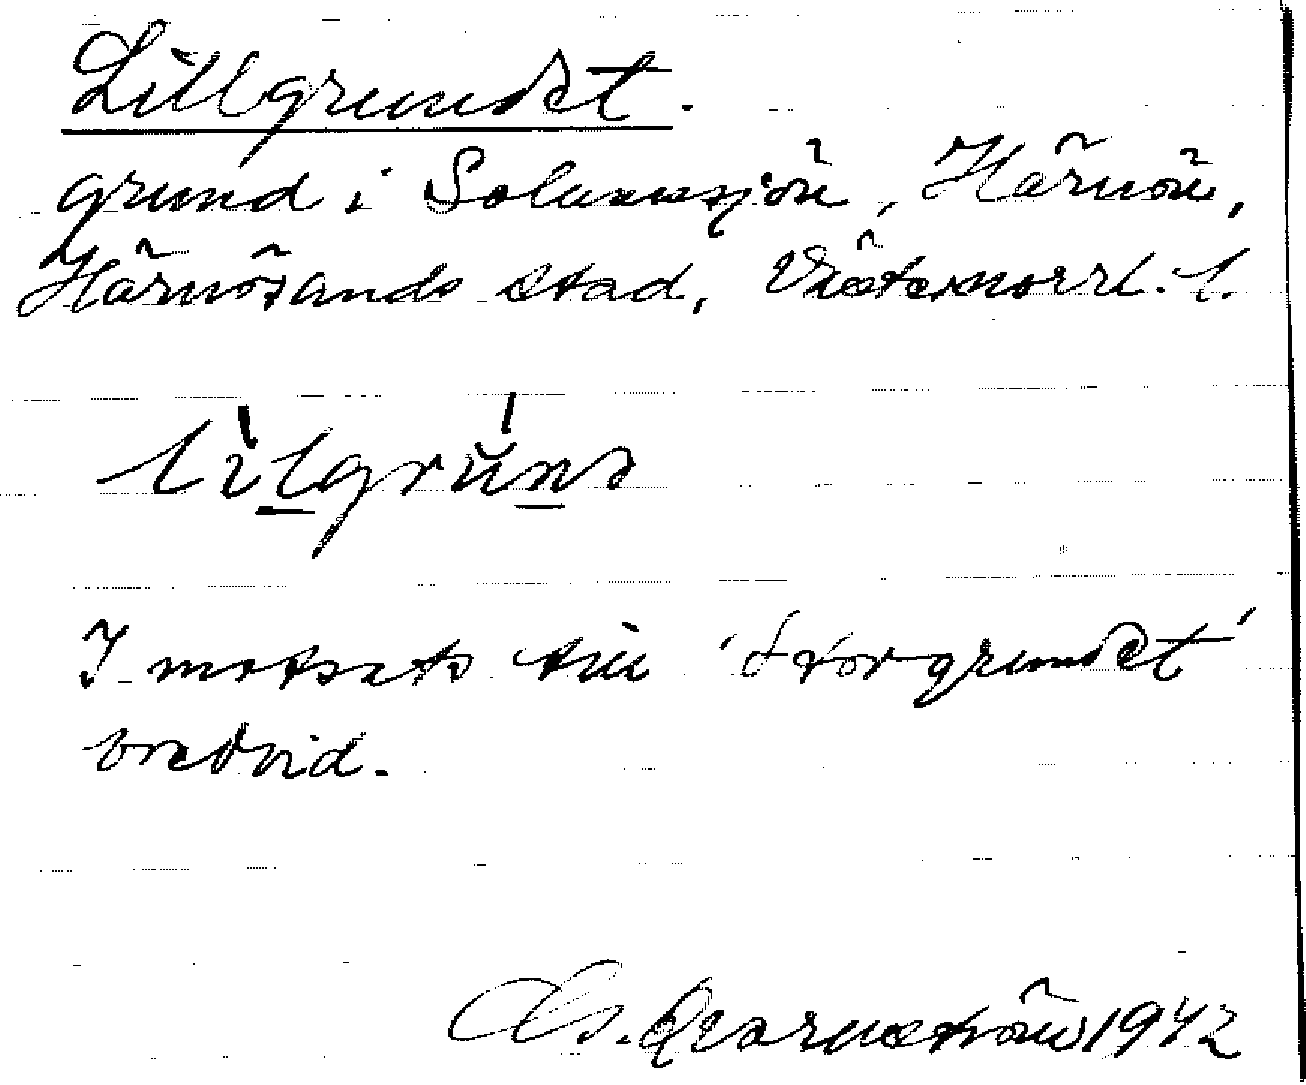 Lillgrundet.
grund i Solumsjön, Härnön,
Härnösands stad, Västernorrl. l.
lìlgrúnd
I motsats till 'Storgrundet'
bredvid.
Qvarnström 1942